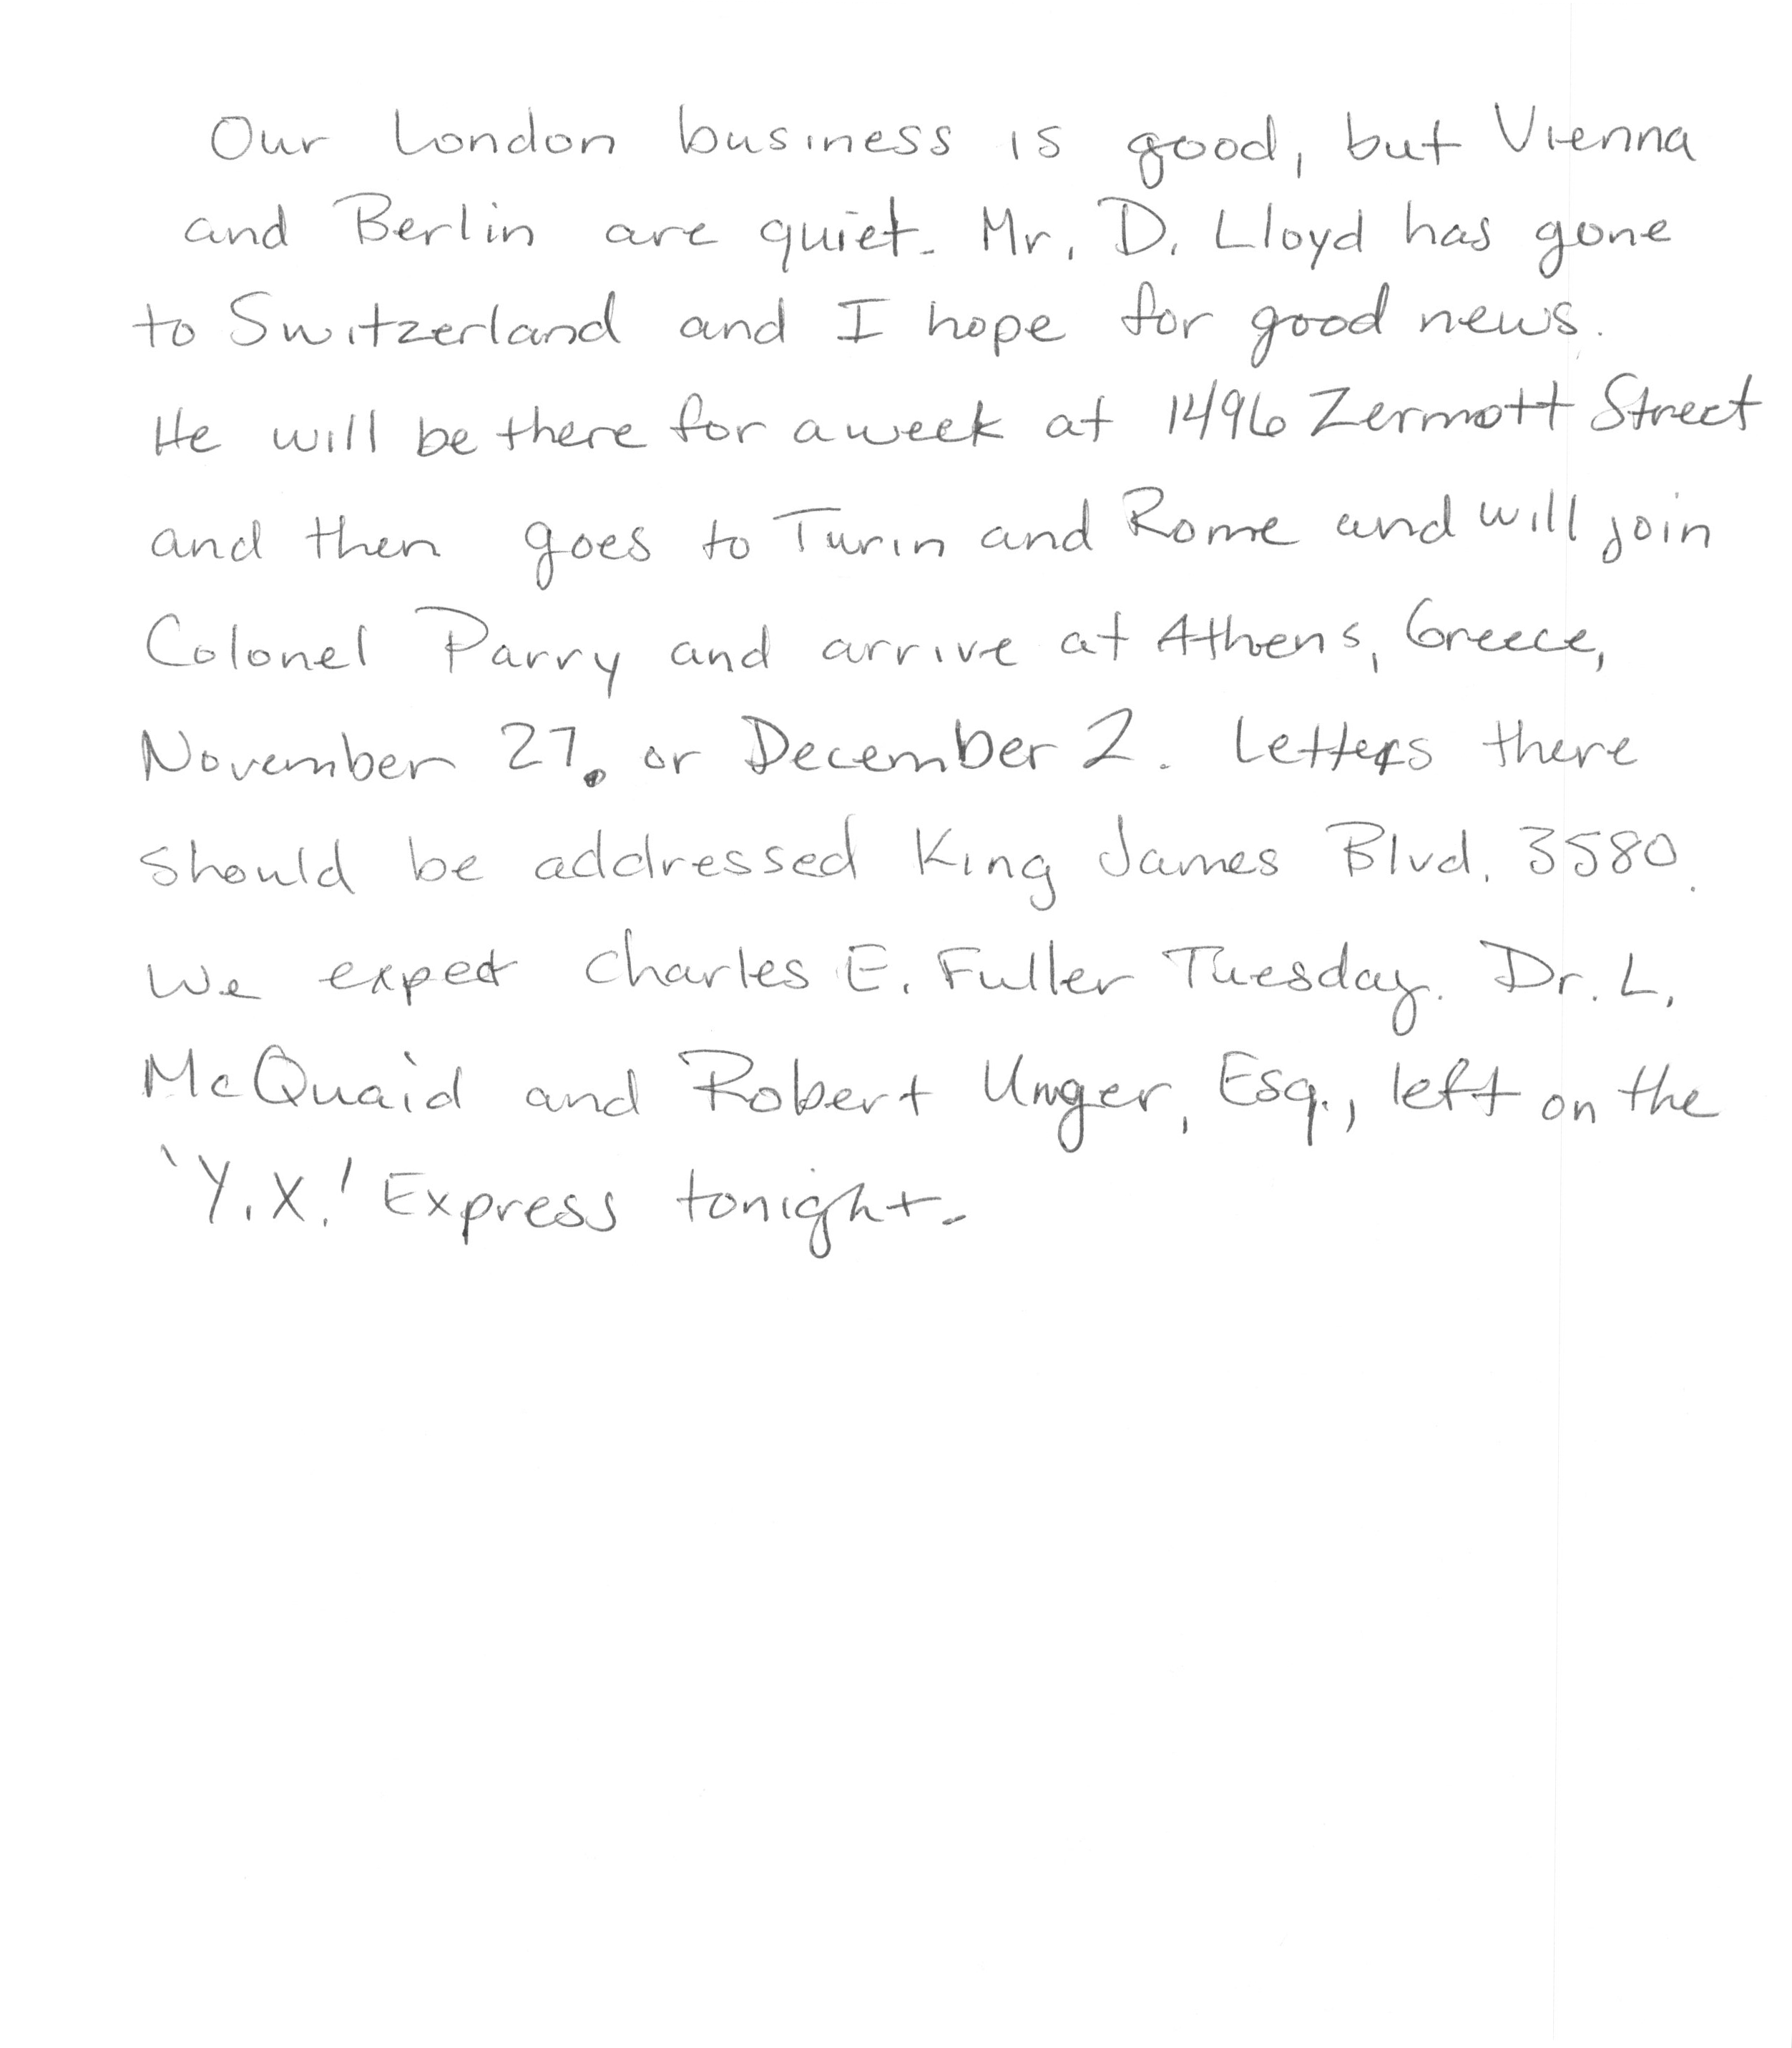 Our London business is good, but Vienna
and Berlin are quiet. Mr. D. Lloyd has gone
to Switzerland and I hope for good news.
He will be there for a week at 1496 Zermott Street
and then goes to Turin and Rome and will join
Colonel Parry and arrive at Athens, Greece,
November 27. or December 2. Letters there
should be addressed King James Blvd. 3580.
We expect Charles E. Fuller Tuesday. Dr. L.
McQuaid and Robert Unger, Esq., left on the
'Y.X.' Express tonight.